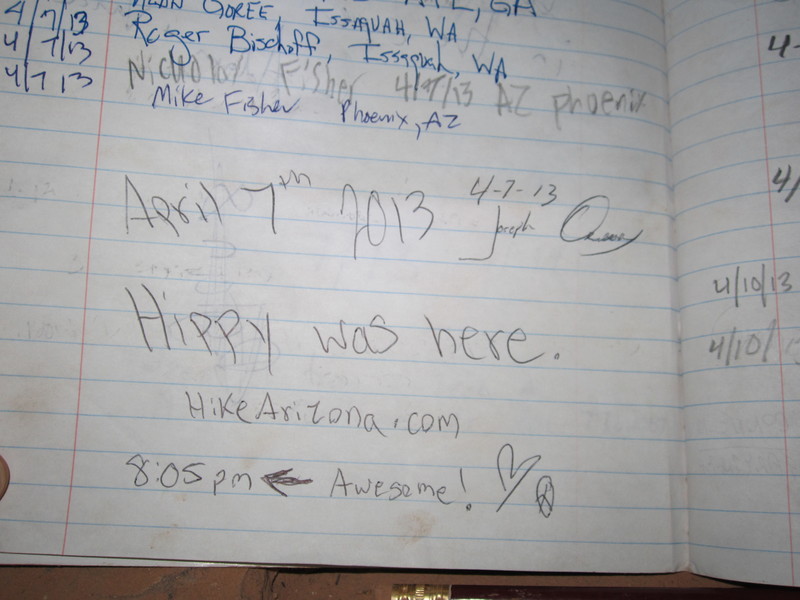 GOREE, ISSAQUAH, WA
4/7/13 Roger Bischoff, Issaquah, WA
4/7/13
4/7/13 Fisher 4/7/13 AZ phoenix
Mike Fisher Phoenix, AZ
April 7th 2013 4-7-13
Joseph
Hippy was here.
HikeArizona.com
8:05pm ← Awesome!
4/10/13
4/10/